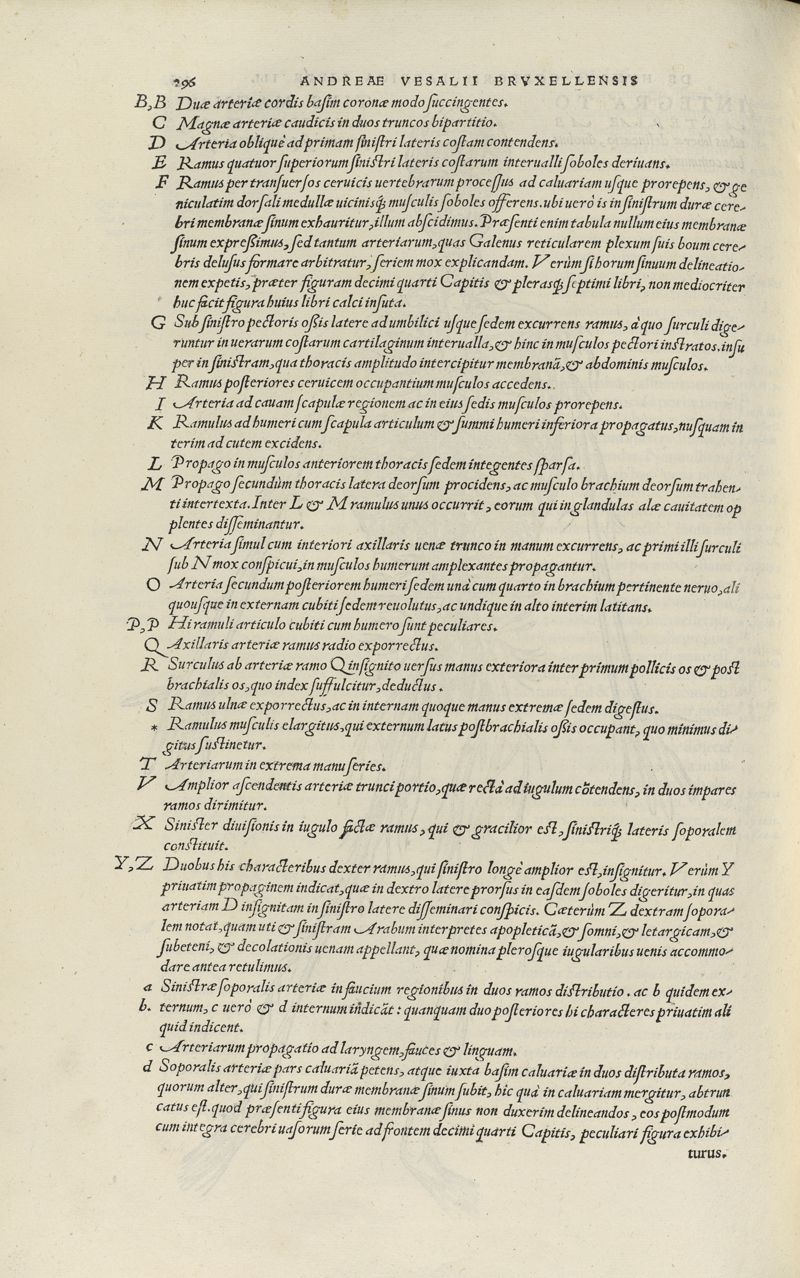 296 ANDREAE VESALII BRVXELLENSIS
B,B Duæ arteriæ cordis basim coronæ modo succingentes.
C Magnæ arteriæ caudicis in duos truncos bipartitio.
D Arteria obliquè ad primam sinistri lateris costam contendens.
E Ramus quatuor superiorum sinistri lateris costarum interualli soboles deriuans.
F Ramus per transuersos ceruicis uertebrarum processus ad caluariam usque prorepens, & ge
niculatim dorsali medullæ uicinisq́; musculis soboles offerens. ubi uerò is in sinistrum duræ cere-
bri membranæ sinum exhauritur, illum abscidimus. Præsenti enim tabula nullum eius membranæ
sinum expreßimus, sed tantum arteriarum, quas Galenus reticularem plexum suis boum cere-
bris delusus formare arbitratur, seriem mox explicandam. Verùm si horum sinuum delineatio-
nem expetis, præter figuram decimi quarti Capitis & plerasq́; septimi libri, non mediocriter
huc facit figura huius libri calci insuta.
G Sub sinistro pectoris oßis latere ad umbilici usque sedem excurrens ramus, à quo surculi dige-
runtur in uerarum costarum cartilaginum interualla, & hinc in musculos pectori instratos. insu
per in sinistram, qua thoracis amplitudo intercipitur membranã, & abdominis musculos.
H Ramus posteriores ceruicem occupantium musculos accedens.
I Arteria ad cauam scapulæ regionem ac in eius sedis musculos prorepens.
K Ramulus ad humeri cum scapula articulum & summi humeri inferiora propagatus, nusquam in
terim ad cutem excidens.
L Propago in musculos anteriorem thoracis sedem integentes sparsa.
M Propago secundùm thoracis latera deorsum procidens, ac musculo brachium deorsum trahen-
ti intertexta. Inter L & M ramulus unus occurrit, eorum qui in glandulas alæ cauitatem op
plentes disseminantur.
N Arteria simul cum interiori axillaris uenæ trunco in manum excurrens, ac primi illi surculi
sub N mox conspicui, in musculos humerum amplexantes propagantur.
O Arteria secundum posteriorem humeri sedem unà cum quarto in brachium pertinente neruo, ali
quousque in externam cubiti sedem reuolutus, ac undique in alto interim latitans.
P,P Hi ramuli articulo cubiti cum humero sunt peculiares.
Q Axillaris arteriæ ramus radio exporrectus.
R Surculus ab arteriæ ramo Q insignito uersus manus exteriora inter primum pollicis os & post
brachialis os, quo index suffulcitur, deductus.
S Ramus ulnæ exporrectus, ac in internam quoque manus extremæ sedem digestus.
* Ramulus musculis elargitus, qui externum latus postbrachialis oßis occupant, quo minimus di-
gitus sustinetur.
T Arteriarum in extrema manu series.
V Amplior ascendentis arteriæ trunci portio, quæ rectà ad iugulum cõtendens, in duos impares
ramos dirimitur.
X Sinister diuisionis in iugulo factæ ramus, qui & gracilior est, sinistriq́; lateris soporalem
constituit.
Y,Z Duobus his characteribus dexter ramus, qui sinistro longè amplior est, insignitur. Verùm Y
priuatim propaginem indicat, quæ in dextro latere prorsus in easdem soboles digeritur, in quas
arteriam D insignitam in sinistro latere disseminari conspicis. Cæterùm Z dextram sopora-
lem notat, quam uti & sinistram Arabum interpretes apopleticã, & somni, & letargicam, &
subeteni, & decolationis uenam appellant, quæ nomina plerosque iugularibus uenis accommo-
dare antea retulimus.
a Sinistræ soporalis arteriæ in faucium regionibus in duos ramos distributio. ac b quidem ex-
b. ternum, c uerò & d internum indicãt: quanquam duo posteriores hi characteres priuatim ali
quid indicent.
c Arteriarum propagatio ad laryngem, fauces & linguam.
d Soporalis arteriæ pars caluariã petens, atque iuxta basim caluariæ in duos distributa ramos,
quorum alter, qui sinistrum duræ membranæ sinum subit, hic quà in caluariam mergitur, abtrun
catus est. quod præsenti figura eius membranæ sinus non duxerim delineandos, eos postmodum
cum integra cerebri uasorum serie ad frontem decimi quarti Capitis, peculiari figura exhibi-
turus.